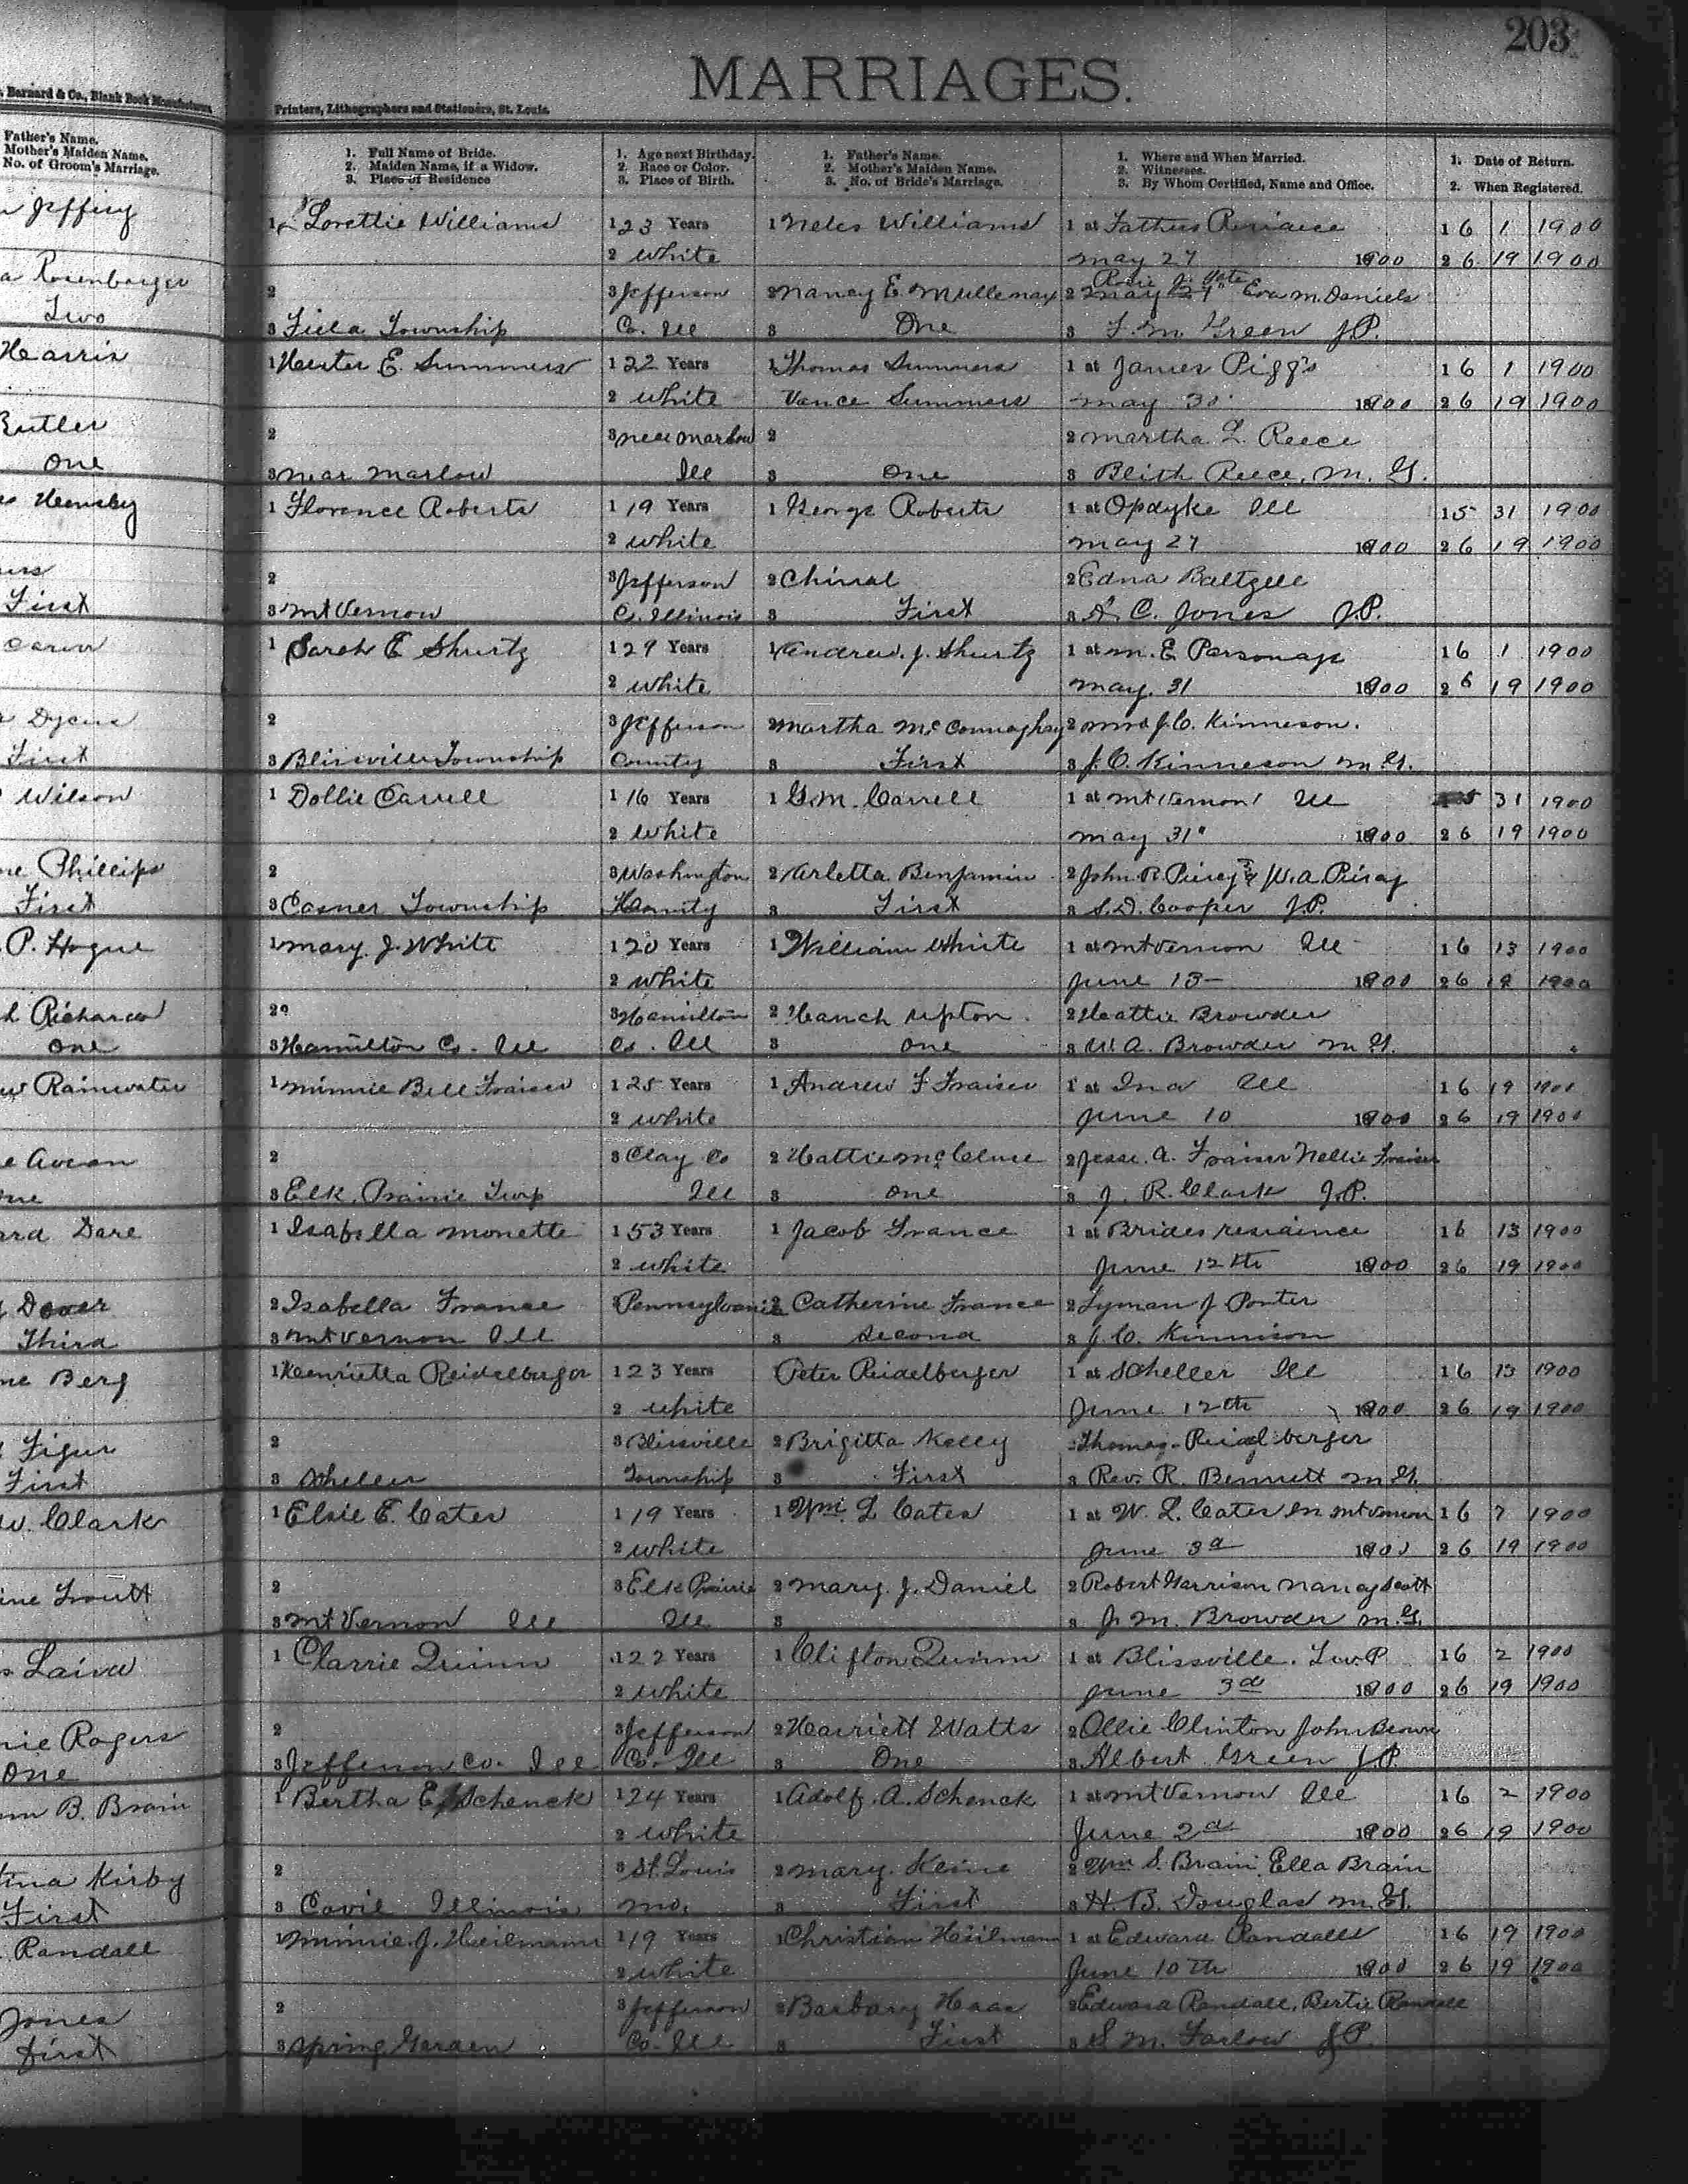 203
MARRIAGES.
Barnard & Co., Blank Book Manufacturers,
Printers, Lithographers and Stationers, St. Louis.
Father's Name.
Mother's Maiden Name.
No. of Groom's Marriage.
1. Full Name of Bride.
2. Maiden Name, if a Widow.
3. Place of Residence
1. Age next Birthday.
2. Race or Color.
3. Place of Birth.
1. Father's Name.
2. Mother's Maiden Name.
3. No. of Bride's Marriage.
1. Where and When Married.
2. Witnesses.
3. By Whom Certified, Name and Office.
1. Date of Return.
2. When Registered.
Jeffery
1 Lorettie Williams 1 23 Years 1 Neles Williams 1 at Fathers 1 6 1 1900
2 White May 27 1900 2 6 19 1900
Rosenbarger
2 3 Jefferson 2 Nancy E. Mullenax 2 Eva M. Daniels
Two
3 Township Co. Ill 3 One 3 F. M. Green J.P.
Harris
1 Hester E. Summers 1 22 Years 1 Thomas Summers 1 at James Pigg's 1 6 1 1900
2 White Vance Summers May 30 1900 2 6 19 1900
Butler
2 3 near Marlow 2 2 Martha L. Reece
One
3 near Marlow Ill 3 One 3 Blith Reece, M. G.
Hensley
1 Florence Roberts 1 19 Years 1 George Roberts 1 at Opdyke Ill 1 5 31 1900
2 White May 27 1900 2 6 19 1900
2 3 Jefferson 2 2 Edna Baltzell
First
3 Mt Vernon Co. Illinois 3 First 3 A. C. Jones J.P.
1 Sarah E Shurtz 1 29 Years 1 Andrew. J. Shurtz 1 at M. E Parsonage 1 6 1 1900
2 White May. 31 1900 2 6 19 1900
Dycus
2 3 Jefferson 2 Martha McConnaghay 2 J. C. Kinneson.
First
3 Blissville Township County 3 First 3 J. C. Kinneson M. G.
Wilson
1 Dollie Carrell 1 16 Years 1 G. M. Carrell 1 at Mt Vernon Ill 31 1900
2 White May 31" 1900 2 6 19 1900
Phillips
2 3 Washington 2 Arletta Benjamin 2 John R. Piercy & W. A. Piercy
First
3 Casner Township County 3 First 3 S. D. Cooper J.P.
P. Hogue
1 Mary. J. White 1 20 Years 1 William White 1 at Mt Vernon Ill 1 6 13 1900
2 White June 13 1900 2 6 19 1900
2 3 Hamilton 2 Upton 2 Hattie Browder
One
3 Hamilton Co. Ill Co. Ill 3 One 3 W. A. Browder M. G.
Rainwater
1 Minnie Bell Fraiser 1 25 Years 1 Andrew F Fraiser 1 at Ina Ill 1 6 19 1900
2 White June 10 1900 2 6 19 1900
2 3 Clay Co 2 Hattie McClure 2 Jesse. A. Fraiser Nellie Fraiser
3 Elk Prairie Twp Ill 3 One 3 J. R. Clark J.P.
Dare
1 Isabella Monette 1 53 Years 1 Jacob France 1 at Brides residence 1 6 13 1900
2 White June 12th 1900 2 6 19 1900
2 Isabella France Pennsylvania 2 Catherine France 2 Lyman J Porter
Third
3 Mt Vernon Ill 3 Second 3 J. C. Kinnison
Berg
1 Henrietta Reidelberger 1 23 Years Peter Reidelberger 1 at Scheller Ill 1 6 13 1900
2 White June 12th 1900 2 6 19 1900
2 3 Blissville 2 Brigitta Kelly Thomas Reidelberger
First
3 Scheller Township 3 First 3 Rev. R. Bennett M. G.
W. Clark
1 Elsie E. Cates 1 19 Years 1 Wm. L Cates 1 at W. L. Cates in Mt Vernon 1 6 7 1900
2 White June 3d 1900 2 6 19 1900
Troutt
2 3 Elk Prairie 2 Mary. J. Daniel 2 Robert Garrison Nancy Scott
3 Mt Vernon Ill Ill 3 3 J. M. Browder M. G.
1 Clarrie Quinn 1 22 Years 1 Clifton Quinn 1 at Blissville. Twp 1 6 2 1900
2 White June 3d 1900 2 6 19 1900
Rogers
2 3 Jefferson 2 Harriett Watts 2 Ollie Clinton John Brown
One
3 Jefferson Co. Ill Co. Ill 3 One 3 Albert Green J.P.
B. Brain
1 Bertha E. Schenck 1 24 Years 1 Adolf. A. Schenck 1 at Mt Vernon Ill 1 6 2 1900
2 White June 2d 1900 2 6 19 1900
Kirby
2 3 St. Louis 2 Mary. Kline 2 Wm S. Brain Ella Brain
First
3 Illinois Mo. 3 First 3 H. B. Douglas M. G.
Randall
1 Minnie. J. Heilmann 1 19 Years 1 Christian Heilmann 1 at Edward Randalls 1 6 19 1900
2 White June 10th 1900 2 6 19 1900
Jones
2 3 Jefferson 2 Barbary Haas 2 Edward Randall, Bertie Randall
First
3 Spring Garden Co. Ill 3 First 3 S. M. Farlow J.P.